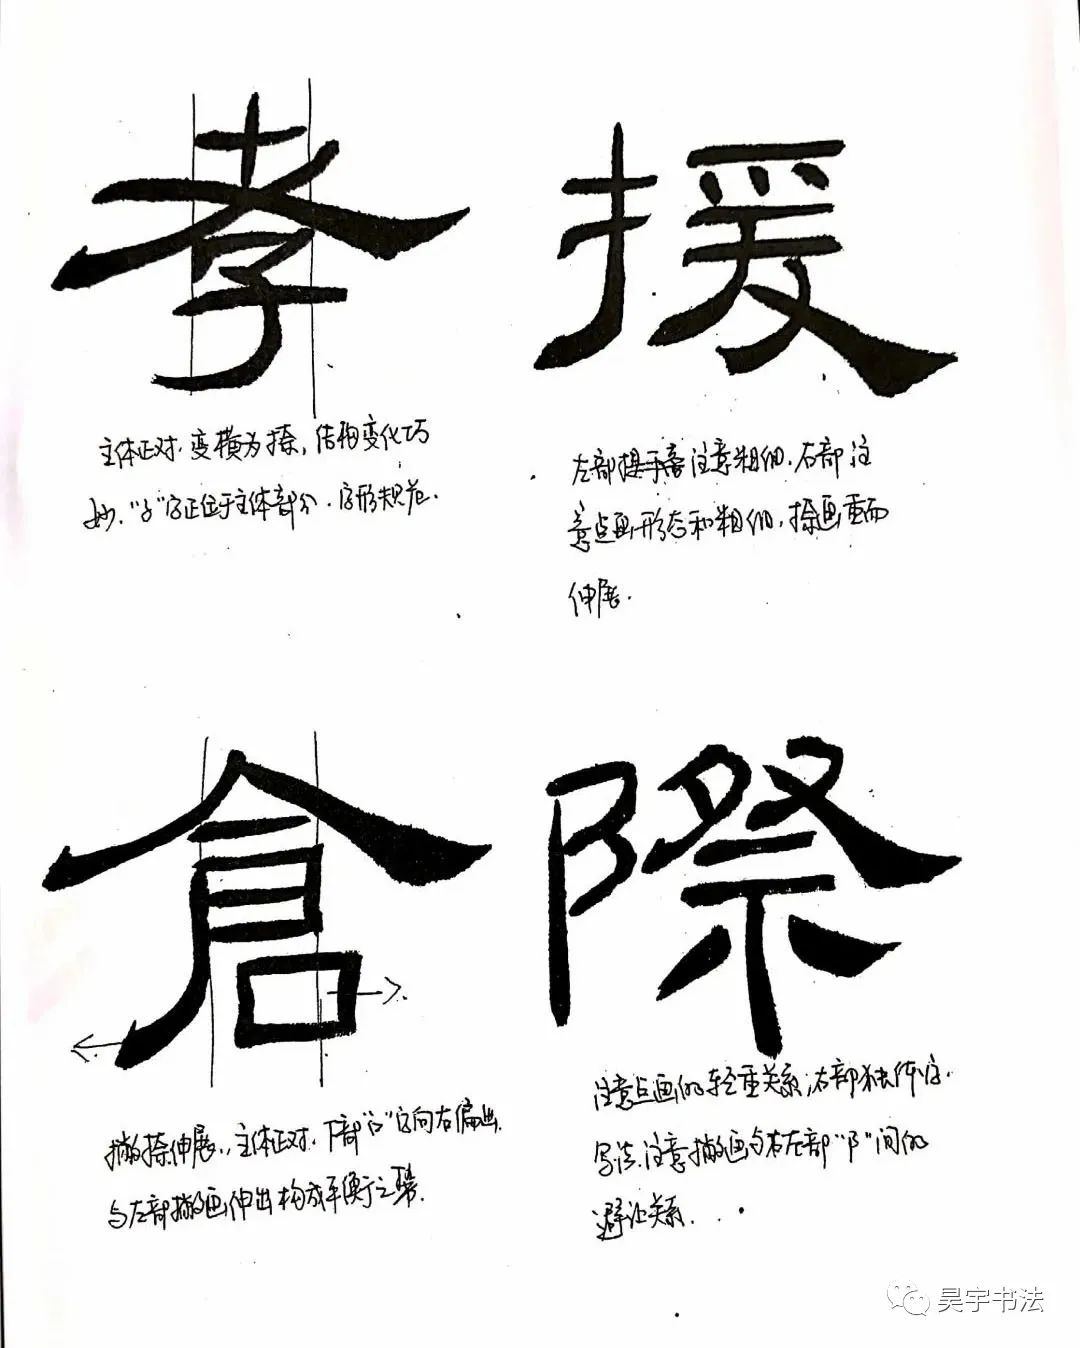 孝 援
主体正对，变横为捺，结构变化巧
妙，“子”字正位于主体部分，字形规范。
左部提手旁注意粗细，右部注
意点画形态和粗细，捺画重而
伸展．
倉 際
撇捺伸展，主体正对，下部“口”字向右偏出，
与左部撇画伸出构成平衡之势．
注意点画的轻重关系，右部独体字
写法，注意撇画与右左部“阝”间的
避让关系．．．
昊宇书法